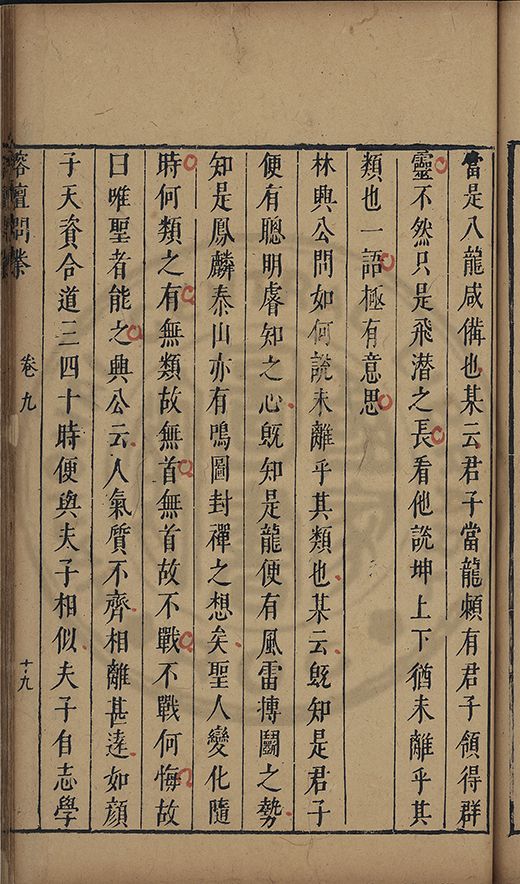 當是八龍咸備也某云君子當龍頫有君子領得群
靈不然只是飛潛之長看他説坤上下猶未離乎其
類也一語極有意思
林興公問如何説未離乎其類也某云既知是君子
便有聰明睿知之心既知是龍便有風雷摶鬭之勢
知是鳳麟泰山亦有鳴圖封禪之想矣聖人變化隨
時何類之有無類故無首無首故不戰不戰何悔故
曰唯聖者能之興公云人氣質不齊相離甚遠如顔
子天資合道三四十時便與夫子相似夫子自志學
榕壇問業
卷九
十九